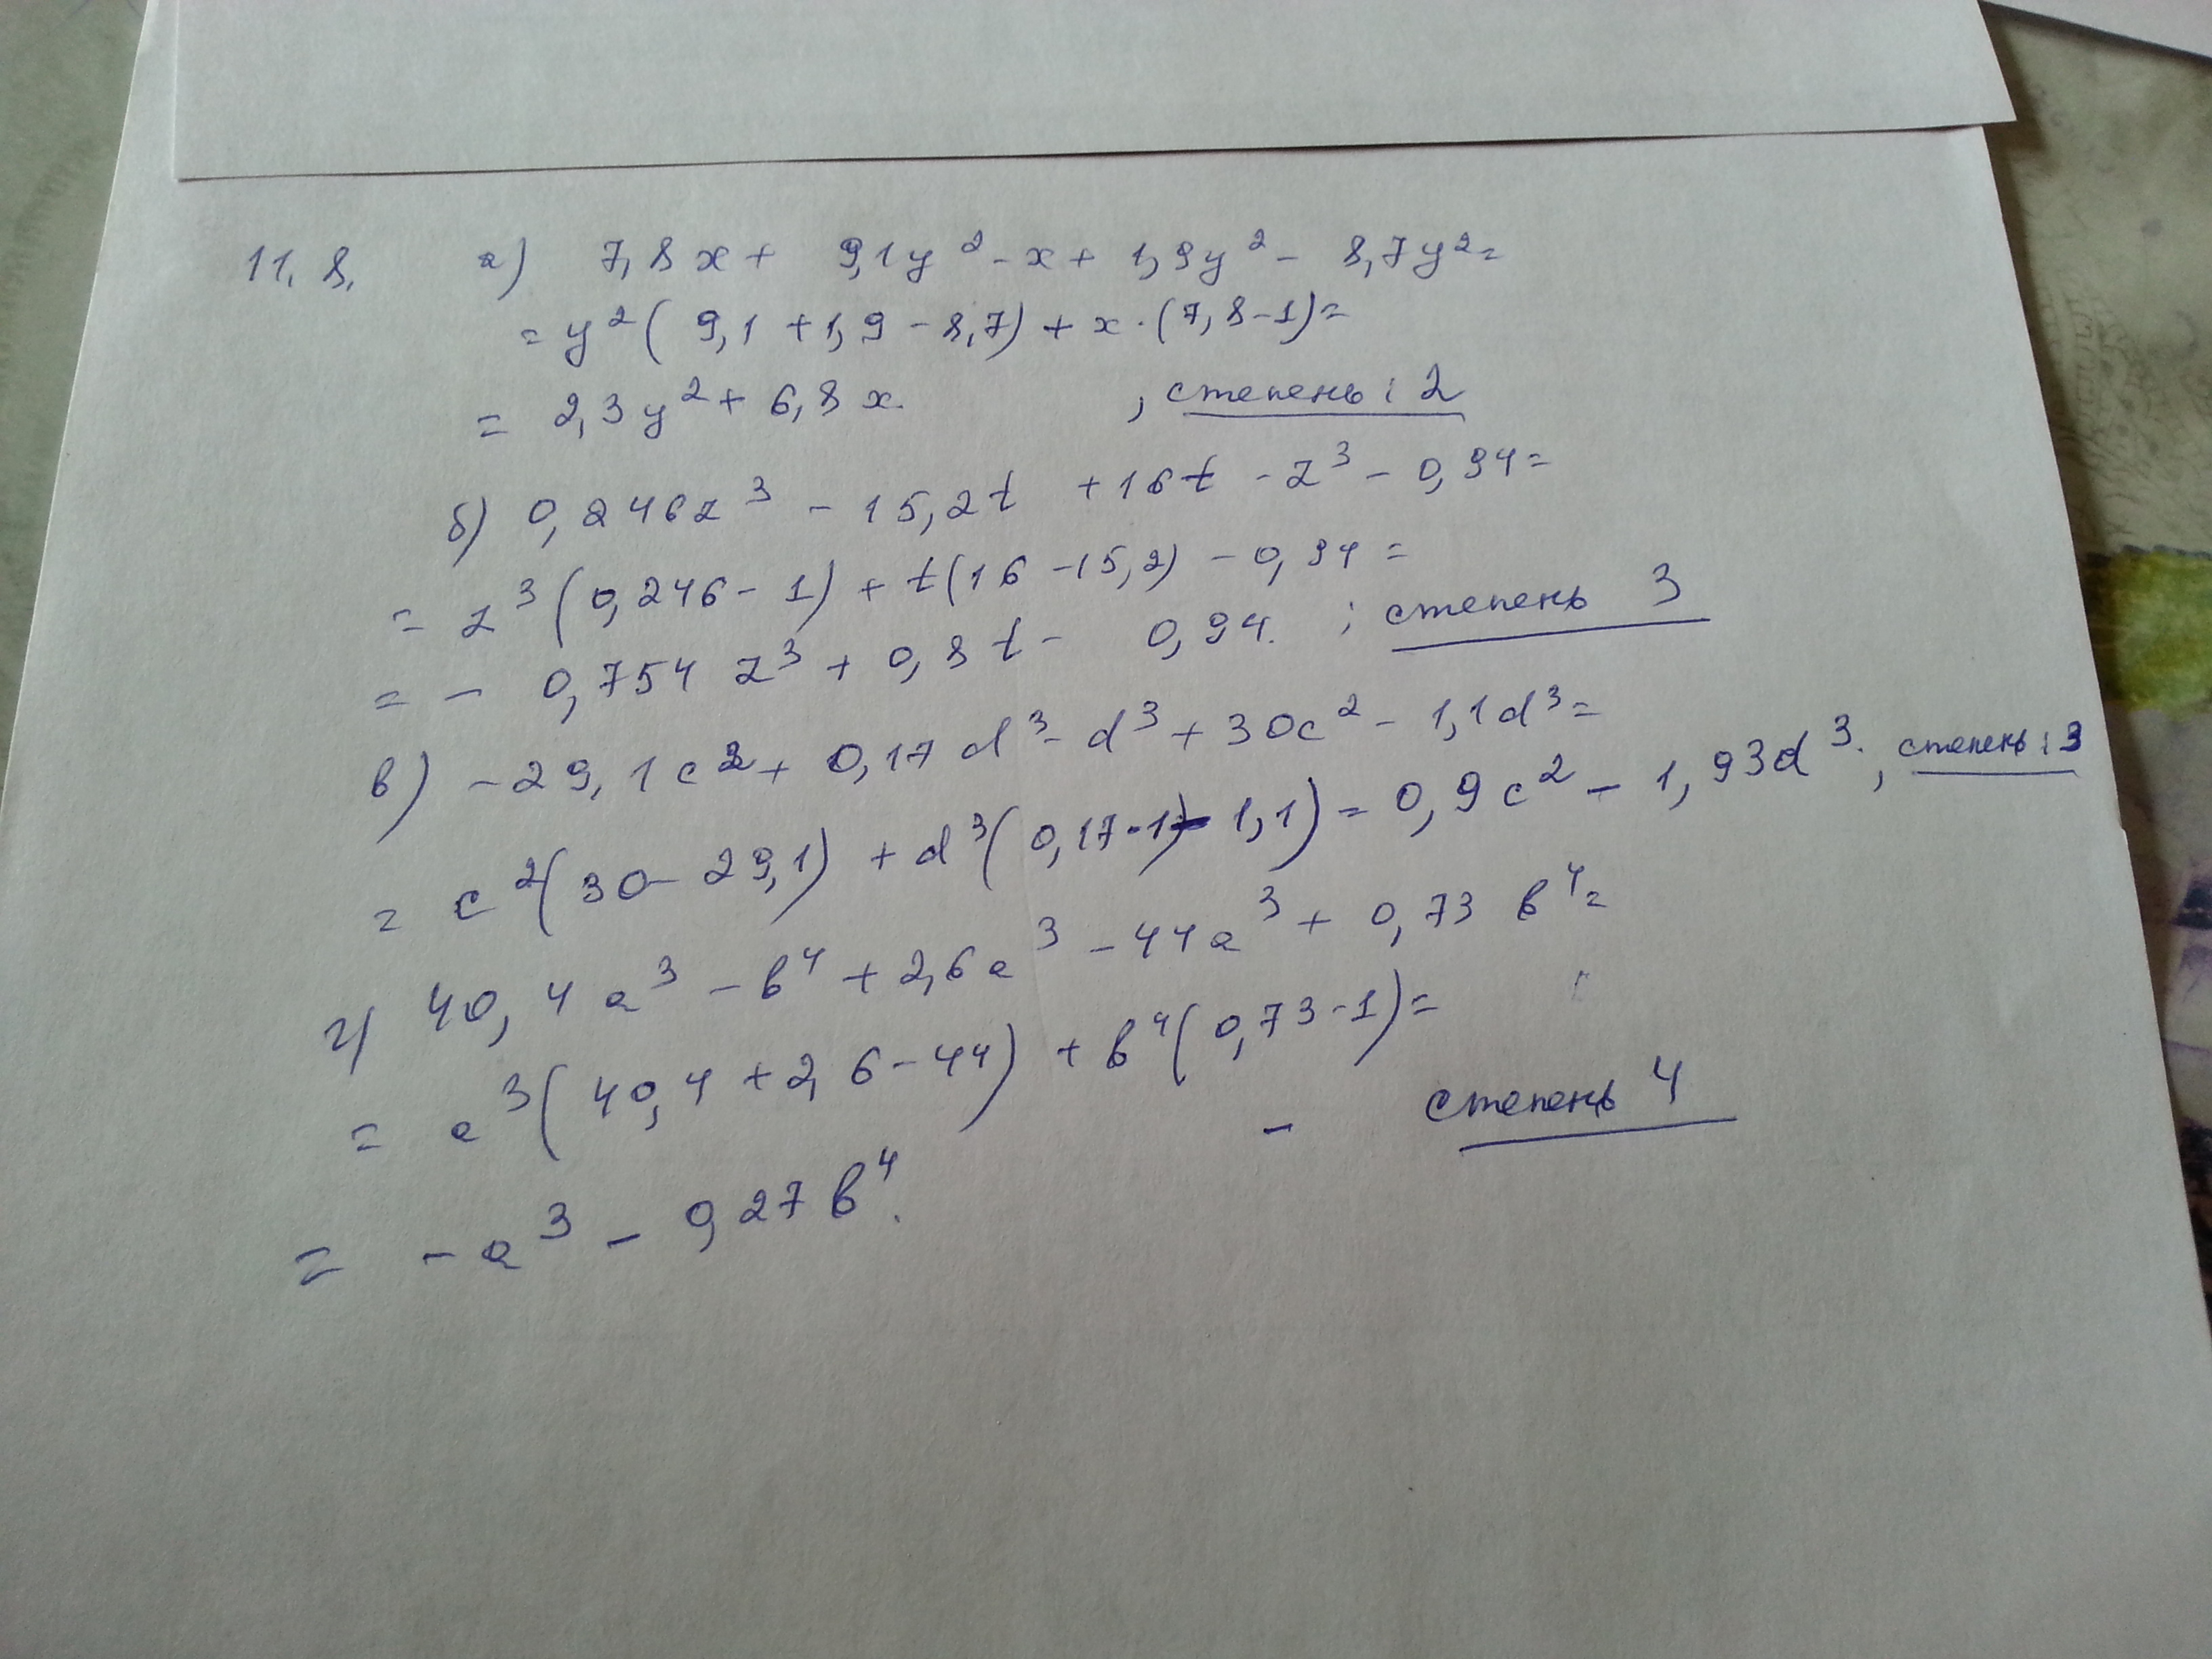 11.8. а) 7,8x + 9,1y² - x + 1,9y² - 8,7y² =
= y²(9,1 + 1,9 - 8,7) + x·(7,8-1) =
= 2,3y² + 6,8x. , степень: 2
б) 0,246z³ - 15,2t + 16t - z³ - 0,94 =
= z³(0,246 - 1) + t(16 - 15,2) - 0,94 =
= - 0,754z³ + 0,8t - 0,94. ; степень 3
в) -29,1c² + 0,17d³ - d³ + 30c² - 1,1d³ =
= c²(30 - 29,1) + d³(0,17 - 1 - 1,1) = 0,9c² - 1,93d³. , степень: 3
г) 40,4a³ - b⁴ + 2,6a³ - 44a³ + 0,73b⁴ =
= a³(40,4 + 2,6 - 44) + b⁴(0,73 - 1) =
= -a³ - 0,27b⁴. - степень 4